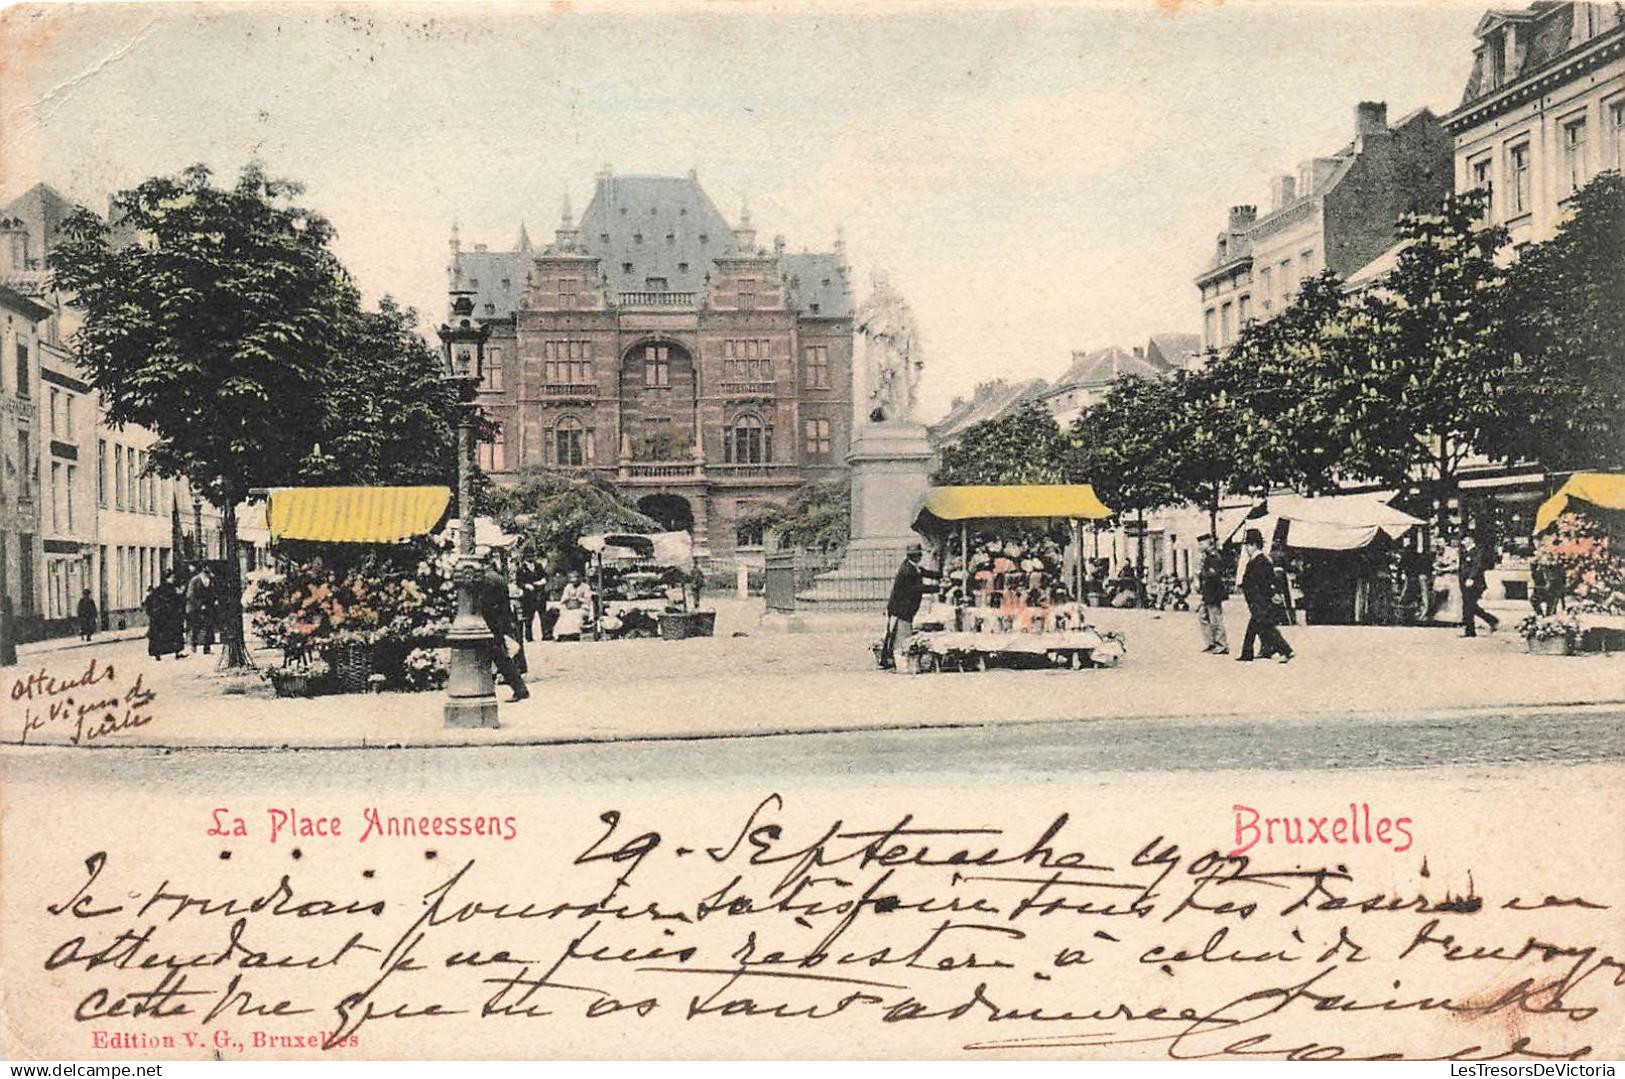 attends
je viens de
suite
La Place Anneessens
29 - Septembre 1902
Bruxelles
Je voudrais pouvoir satisfaire tous tes désirs en
attendant je ne puis résister à celui de t'envoyer
cette vue que tu as tant admirée
Edition V. G., Bruxelles
LesTresorsDeVictoria